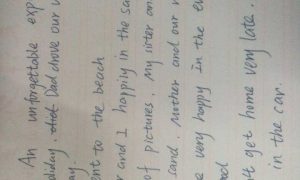 An unforgettable exp
liday. Dad drove our
ay.
nt to the beach
r and I happily in the sa
of pictures. My sister an
land. Mother and our
e very happy in the e
od
ft get home very late.
in the car.